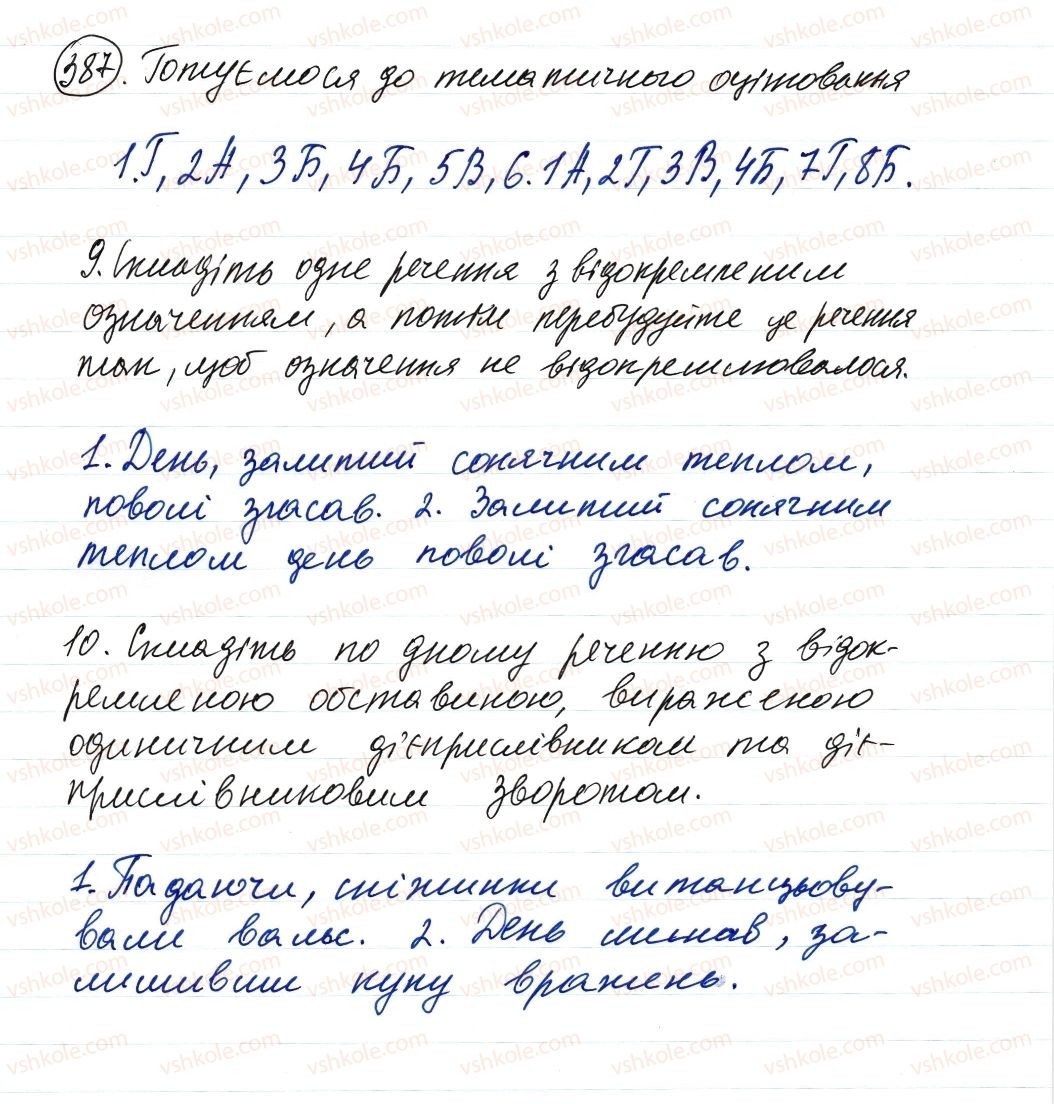 387. Готуємося до тематичного оцінювання
1.Г, 2А, 3Б, 4Б, 5В, 6.1А, 2Г, 3В, 4Б, 7Г, 8Б.
9. Складіть одне речення з відокремленим
означенням, а потім перебудуйте це речення
так, щоб означення не відокремлювалося.
1. День, залитий сонячним теплом,
поволі згасав. 2. Залитий сонячним
теплом день поволі згасав.
10. Складіть по дному реченню з відок-
ремленою обставиною, вираженою
одиничним дієприслівником та діє-
прислівниковим зворотом.
1. Падаючи, сніжинки витанцьову-
вали вальс. 2. День минав, за-
лишивши купу вражень.